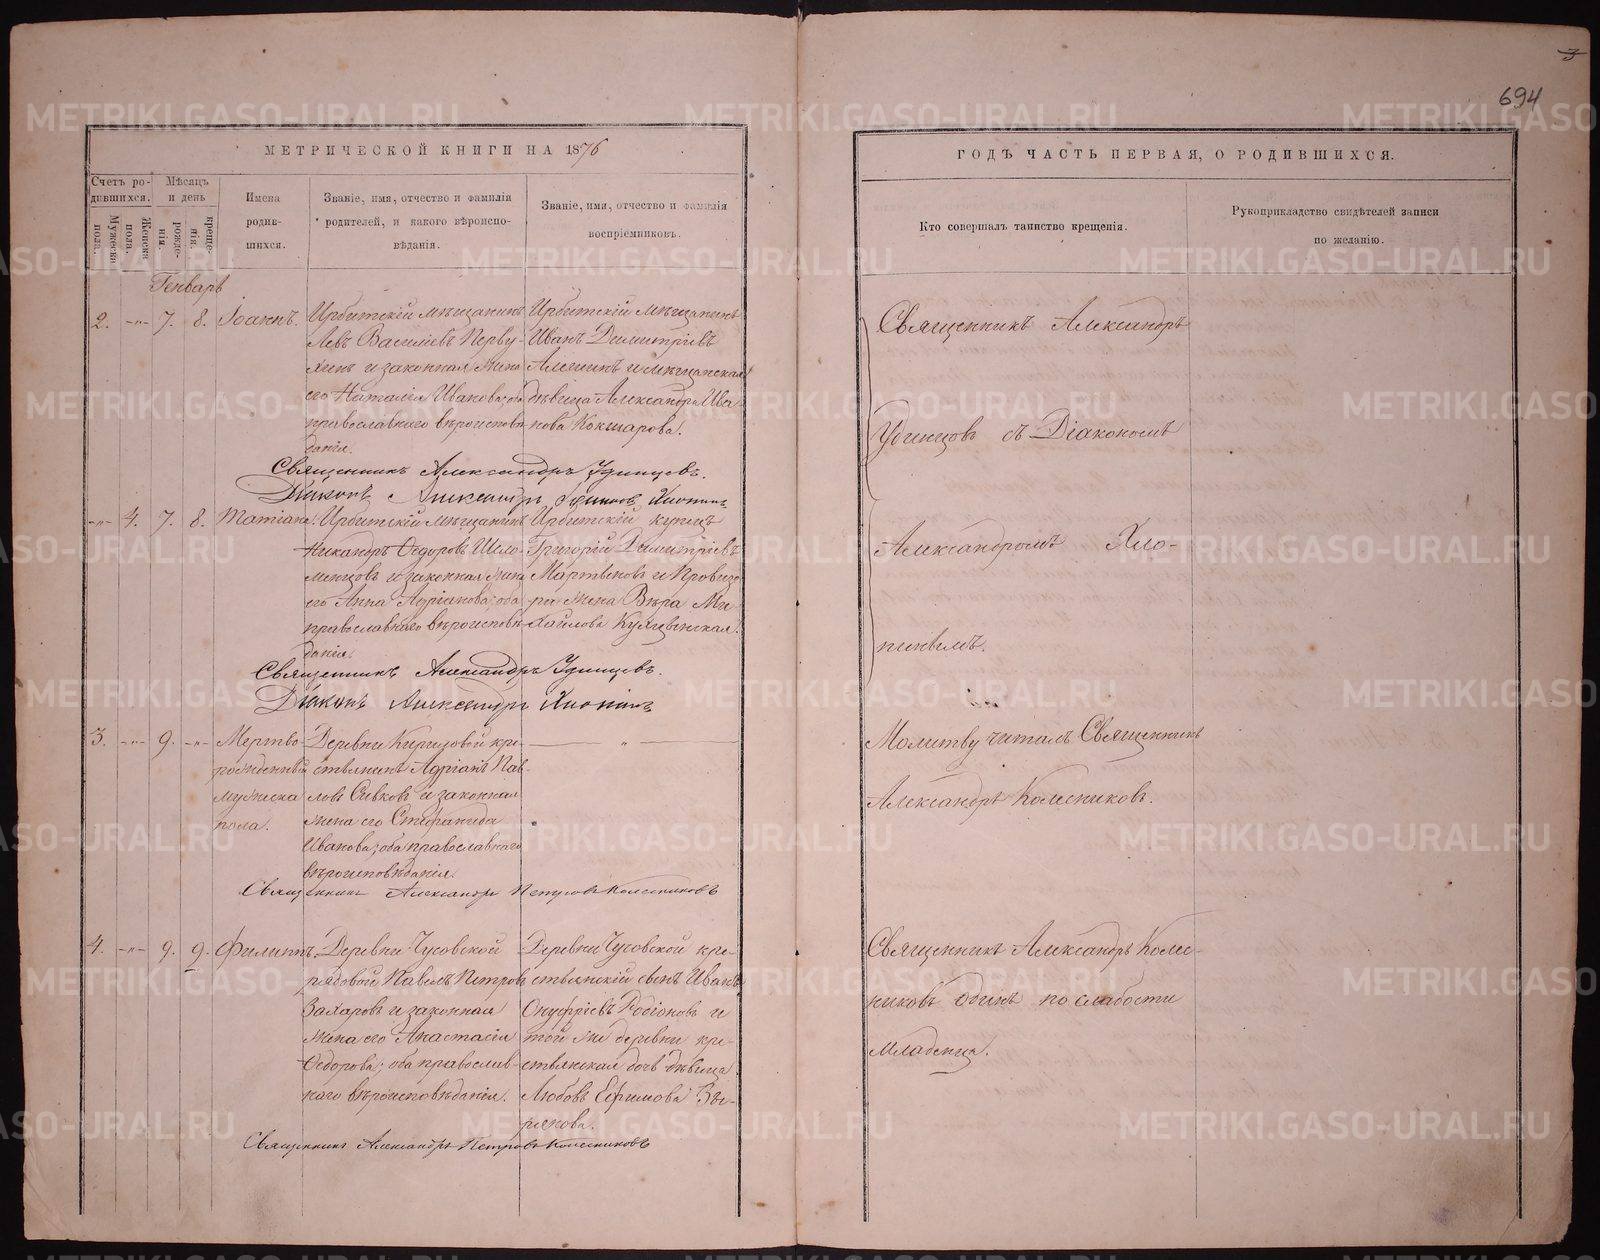 3
694
МЕТРИЧЕСКОЙ КНИГИ НА 1876
Счетъ ро-
дившихся.
Мужеска
пола.
Женска
пола.
Мѣсяцъ
и день
рожде-
нія.
креще-
нія.
Имена
родив-
шихся.
Званіе, имя, отчество и фамилія
родителей, и какого вѣроиспо-
вѣданія.
Званіе, имя, отчество и фамилія
воспріемниковъ.
Генварь
2. -"- 7. 8. Іоаннъ.
Ирбитскій мѣщанинъ
Левъ Васильевъ Перву-
хинъ и законная жена
его Наталія Иванова; оба
православнаго вѣроисповѣ-
данія.
Ирбитскій мѣщанинъ
Иванъ Димитріевъ
и мѣщанская
дѣвица Александра Ива-
нова Кокшарова.
Священникъ Александръ Удинцевъ.
Діаконъ Александръ Хлопинъ
-"- 4. 7. 8. Татіана.
Ирбитскій мѣщанинъ
Никандръ Ѳедоровъ Шело-
менцовъ и законная жена
его Анна Адріанова; оба
православнаго вѣроисповѣ-
данія.
Ирбитскій купецъ
Григорій Димитріевъ
Мартьяновъ и Провизо-
ра жена Вѣра Ми-
хайлова
Священникъ Александръ Удинцевъ.
Діаконъ Александръ Хлопинъ
3. -"- 9. -"- Мертво-
рожденный
мужеска
пола.
Деревни Киргизовой кре-
стьянинъ Адріанъ Пав-
ловъ Сивковъ и законная
жена его Стефанида
Иванова; оба православнаго
вѣроисповѣданія.
— " —
Священникъ Александръ Петровъ Колесниковъ
4. -"- 9. 9. Филиппъ.
Деревни Чусовской
рядовой Павелъ Петровъ
Захаровъ и законная
жена его Анастасія
Ѳедорова; оба православ-
наго вѣроисповѣданія.
Деревни Чусовской кре-
стьянскій сынъ Иванъ
Онуфріевъ Родіоновъ и
той же деревни кре-
стьянская дочь дѣвица
Любовь Ефимова Зы-
рянова.
Священникъ Александръ Петровъ Колесниковъ
ГОДЪ ЧАСТЬ ПЕРВАЯ, О РОДИВШИХСЯ.
Кто совершалъ таинство крещенія.
Рукоприкладство свидѣтелей записи
по желанію.
Священникъ Александръ
Удинцовъ съ Діакономъ
Александромъ Хло-
пинымъ.
Молитву читалъ Священникъ
Александръ Колесниковъ.
Священникъ Александръ Колес-
никовъ одинъ по слабости
младенца.
METRIKI.GASO-URAL.RU